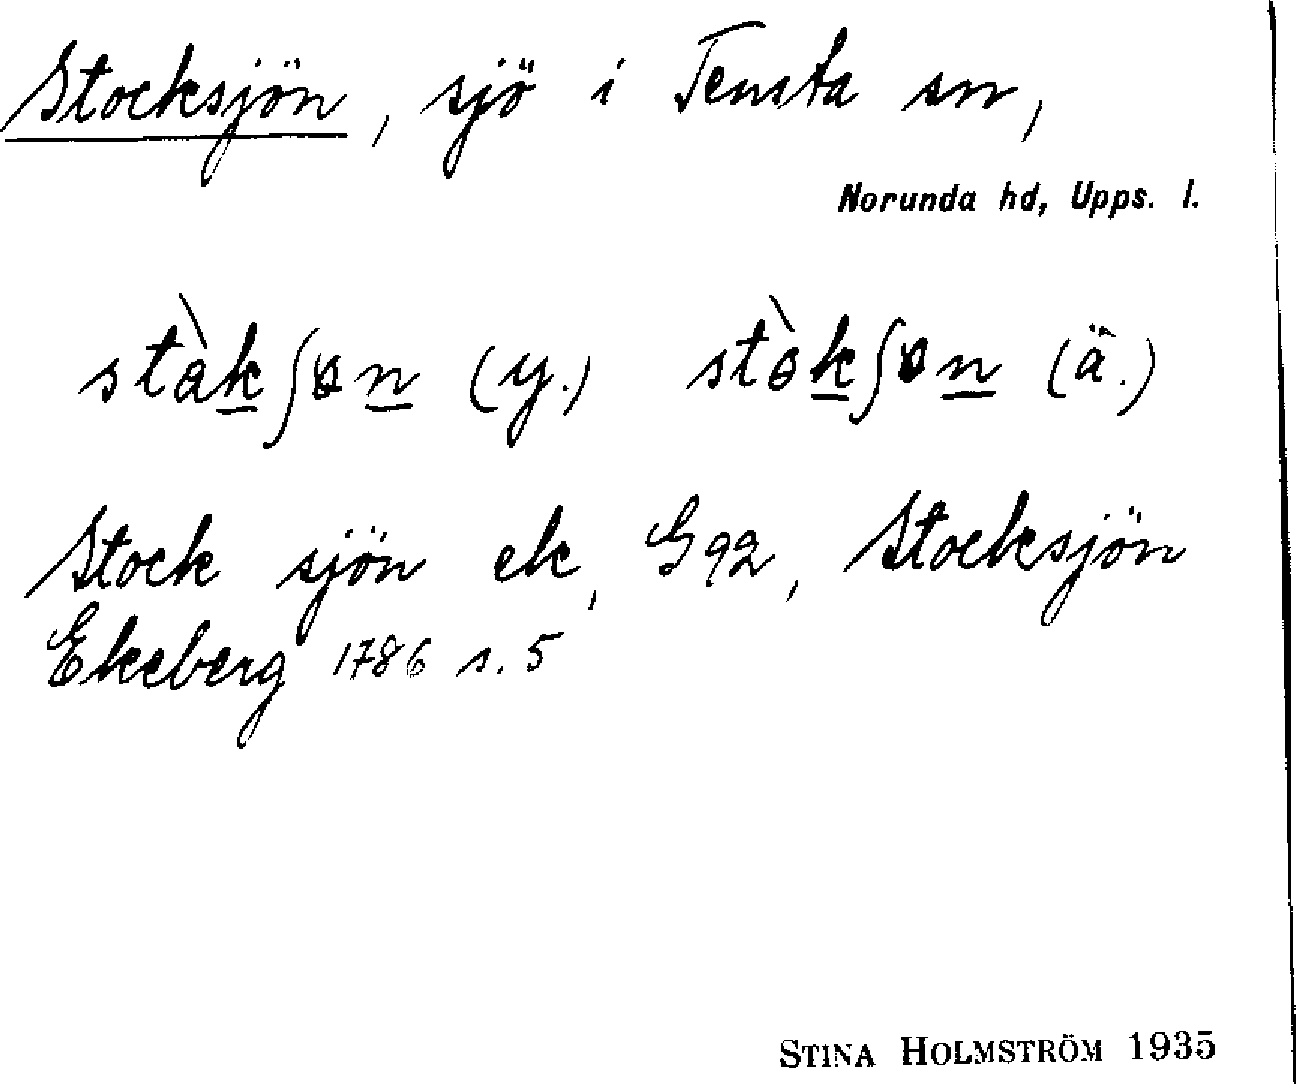 Stocksjön, sjö i Tensta sn,
Norunda hd, Upps. l.
(y.) (ä.)
Stock sjön ek, G 92, Stocksjön
Ekeberg 1786 s. 5
STINA HOLMSTRÖM 1935